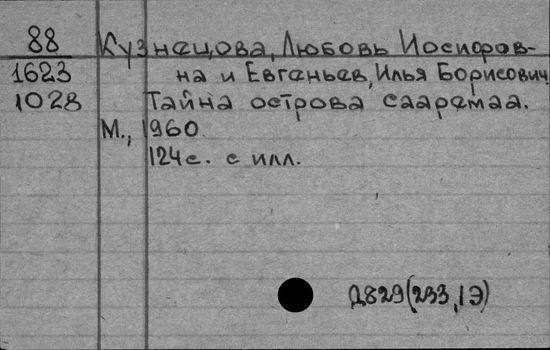 88 Кузнецова, Любовь Иосифов-
1623 на и Евгеньев, Илья Борисович
1028 Тайна острова Сааремаа.
М., 1960.
124с. с илл.
Д829(233,1Э)